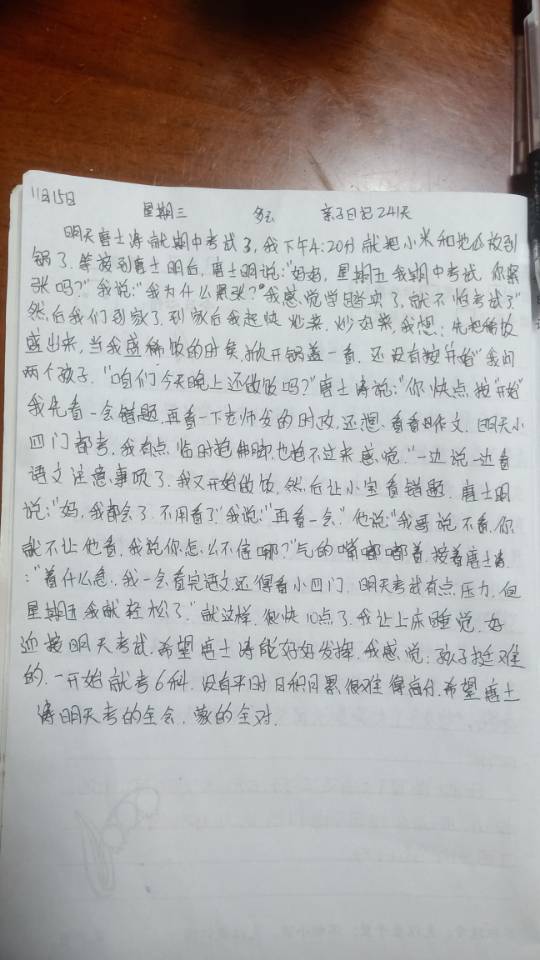 11月15日 星期三 多云 亲子日记241天
明天唐士涛就期中考试了,我下午4:20分就把小米和地瓜放到
锅了.等接到唐士明后,唐士明说:"妈妈,星期五我期中考试,你紧
张吗?"我说:"我为什么紧张?我感觉学踏实了,就不怕考试了"
然后我们到家了.到家后我赶快炒菜,炒好菜,我想:先把稀饭
盛出来,当我盛稀饭的时候,掀开锅盖一看,还没有按"开始"我问
两个孩子."咱们今天晚上还做饭吗?"唐士涛说:"你快点按"开始"
我先看一会错题,再看一下老师发的时政,还想看看作文,明天小
四门都考,我有点临时抱佛脚,也抱不过来感觉."一边说一边看
语文注意事项了.我又开始做饭,然后让小宝看错题,唐士明
说:"妈,我都会了.不用看了"我说:"再看一会."他说:"我哥说不看,你
就不让他看,我说你怎么不信哪?"气的嘴嘟嘟着,接着唐士涛
:"着什么急,我一会看完语文还得看小四门,明天考试有点压力,但
星期五我就轻松了."就这样,很快10点了,我让上床睡觉,好
迎接明天考试.希望唐士涛能好好发挥.我感觉:孩子挺难
的.一开始就考6科.没有平时日积月累很难得高分.希望唐士
涛明天考的全会,蒙的全对.